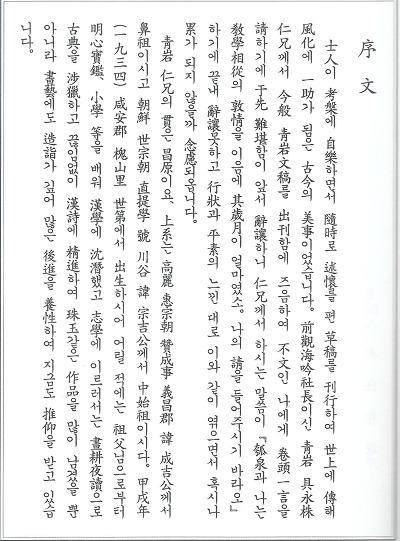 序文
士人이 考槃에 自樂하면서 隨時로 述懷를 편 草稿를 刊行하여 世上에 傳해
風化에 一助가 됨은 古今의 美事이었습니다. 前觀海吟社長이신 青岩 具永株
仁兄께서 今般 青岩文稿를 出刊함에 즈음하여 不文인 나에게 卷頭一言을
請하기에 于先 難堪함이 앞서 辭讓하니 仁兄께서 하시는 말씀이 『瓠泉과 나는
敎學相從의 敦情을 이음에 其歲月이 얼마였소. 나의 請을 들어주시기 바라오』
하기에 끝내 辭讓못하고 行狀과 平素의 느낀 대로 이와 같이 엮으면서 혹시나
累가 되지 않을까 念慮되옵니다.
青岩 仁兄의 貫은 昌原이요, 上系는 高麗 惠宗朝 贊成事 義昌郡 諱 成吉公께서
鼻祖이시고 朝鮮 世宗朝 直提學 號 川谷 諱 宗吉公께서 中始祖이시다. 甲戌年
(一九三四) 咸安郡 槐山里 世第에서 出生하시어 어릴 적에는 祖父님으로부터
明心寶鑑、小學 等을 배워 漢學에 沈潛했고 志學에 이르러서는 晝耕夜讀으로
古典을 涉獵하고 끊임없이 漢詩에 精進하여 珠玉같은 作品을 많이 남겼을 뿐
아니라 書藝에도 造詣가 깊어 많은 後進을 養性하여 지금도 推仰을 받고 있습
니다.